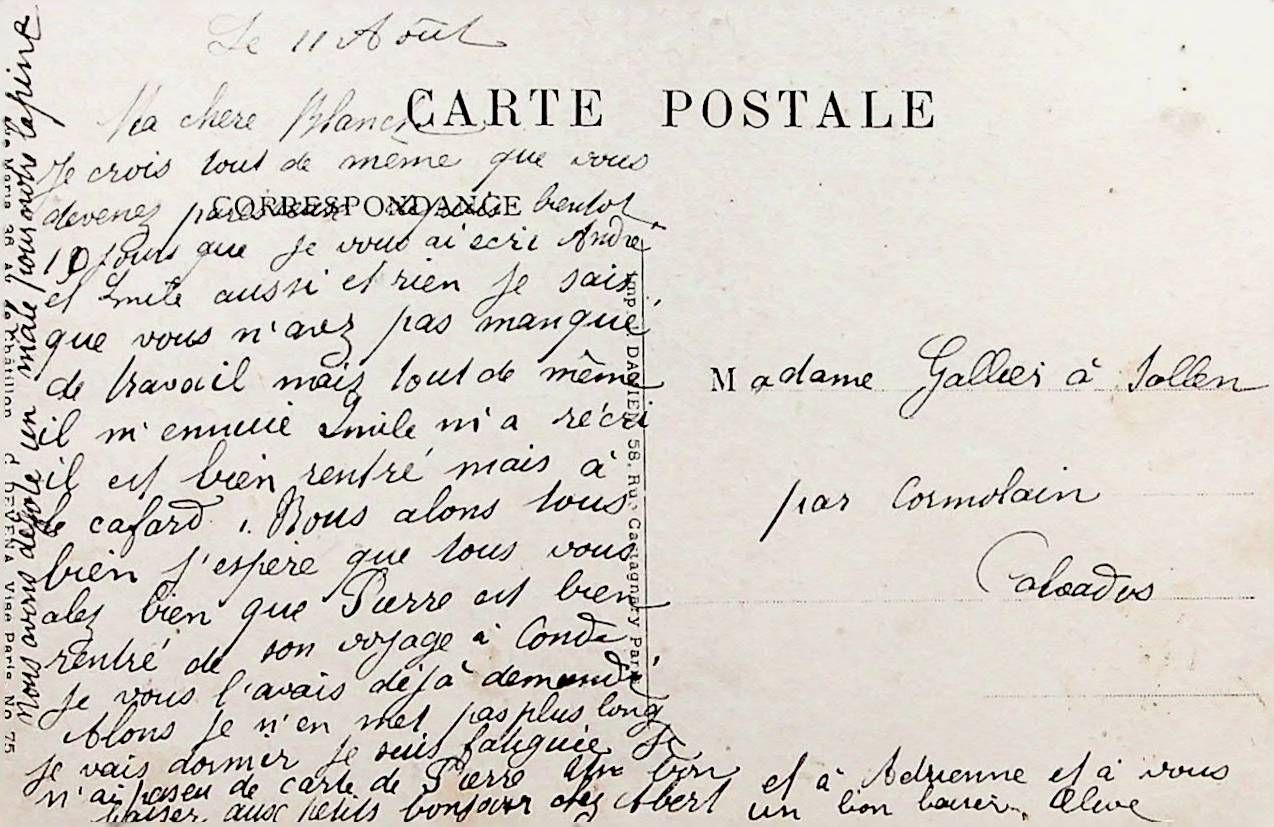 Le 11 Août
CARTE POSTALE
Ma chere Blanche
Je crois tout de même que vous
CORRESPONDANCE
devenez bentot
19 Jours que Je vous ai ecri André
et Emile aussi et rien Je sais
que vous n'avez pas manqué
de travail mais tout de même
il m'ennuie Emile m'a récri
il est bien rentré mais à
le cafard. Nous alons tous
bien J'espère que tous vous
alez bien que Pierre est bien
rentré de son voyage à Condé
Je vous l'avais déjà demandé
Alons Je n'en met pas plus long
Je vais dormer Je suis fatiguée Je
n'ai pas eu de carte de Pierre Un bon
baiser aux petits bonjour chez Abert
et à Adrienne et à vous
un bon baiser
Nous avons un male pour notre lapine
Madame Gallier à Sallen
par Cormolain
Calvados
58, Rue Castagnary Paris
Visé Paris No 75